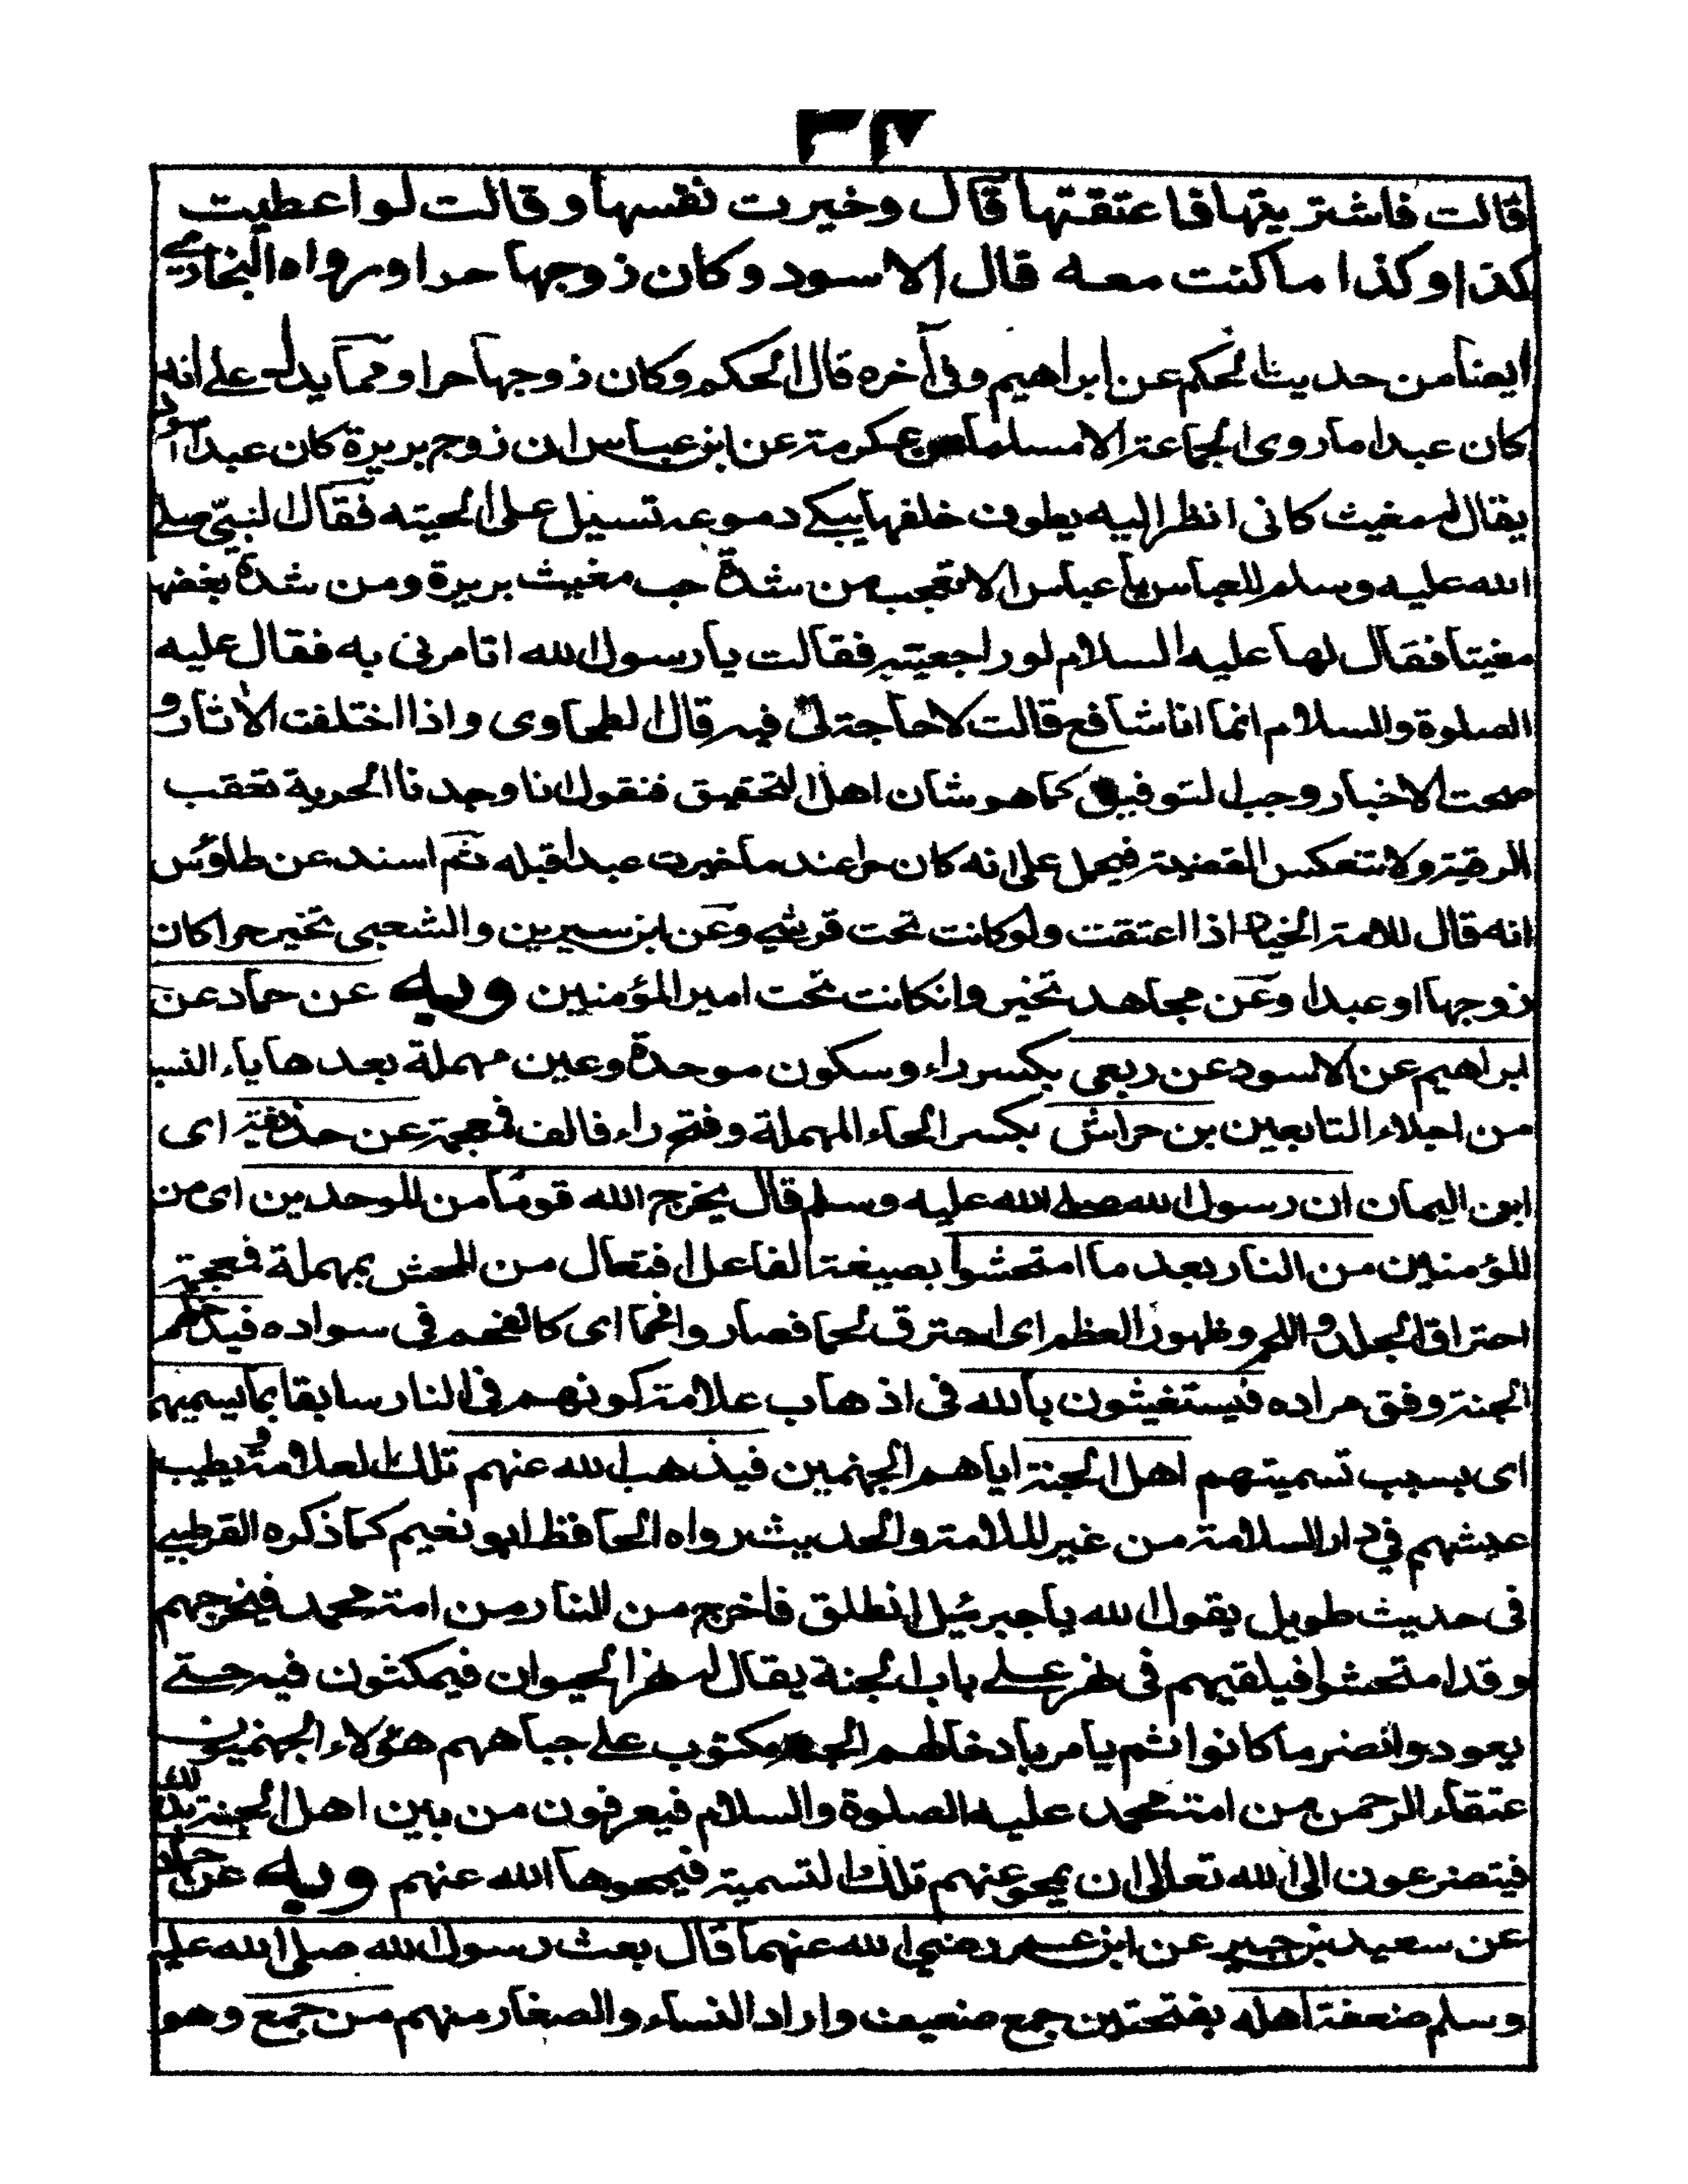 قالت فاشتريتها فاعتقتها قال وخيرت نفسها وقالت لو اعطيت
كذا وكذا ما كنت معه قال الاسود وكان زوجها حرا ورواه البخاري
ايضا من حديث الحكم عن ابراهيم وفى آخره قال الحكم وكان زوجها حرا ومما يدل على انه
كان عبدا ما روى الجماعة الا مسلما عن عكرمة عن ابن عباس ان زوج بريرة كان عبدا اسود
يقال له مغيث كانى انظر اليه يطوف خلفها يبكے دموعه تسيل على لحيته فقال النبيّ صلے
الله عليه وسلم للعباس يا عباس الا تعجب من شدة حب مغيث بريرة ومن شدة بغضها
مغيثا فقال لها عليه السلام لو راجعيته فقالت يا رسول الله اتامرنى به فقال عليه
الصلوة والسلام انما انا شافع قالت لا حاجة لى فيه قال الطحاوى واذا اختلفت الآثار و
صحت الاخبار وجب التوفيق كما هو شان اهل التحقيق فنقول انا وجدنا الحرية تعقب
الرقية ولا تنعكس القضية فيحمل على انه كان حرا عند ما خيرت عبدا قبله ثم اسند عن طاؤس
انه قال للامة الخيار اذا اعتقت ولو كانت تحت قرشي وعن ابن سيرين والشعبى تخير حرا كان
زوجها او عبدا وعن مجاهد تخير وانكانت تحت امير المؤمنين وبه عن حماد عن
ابراهيم عن الاسود عن ربعى بكسر راء وسكون موحدة وعين مهملة بعدها ياء النسبة
من اجلاء التابعين بن حراش بكسر الحاء المهملة وفتح راء فالف فمعجمة عن حذيفة اى
ابن اليمان ان رسول الله صلے الله عليه وسلم قال يخرج الله قوما من الموحدين اى من
المؤمنين من النار بعد ما امتحشوا بصيغة الفاعل افتعال من المحش بمهملة فمعجمة
احتراق الجلد و اللحم وظهور العظم اى احترق لحما فصاروا فحما اى كالفحم فى سواده فيدخلهم
الجنة وفق مراده فيستغيثون بالله فى اذهاب علامة كونهم فى النار سابقا بما يسميهم
اى بسبب تسميتهم اهل الجنة اياهم الجهنميين فيذهب الله عنهم تلك العلامة و يطيب
عيشهم فى دار السلامة من غير الملامة والحديث رواه الحافظ ابو نعيم كما ذكره القرطبے
فى حديث طويل يقول الله يا جبرئيل انطلق فاخرج من النار من امة محمد فيخرجهم
وقد امتحشوا فيلقيهم فى نهر علے باب الجنة يقال له نهر الحيوان فيمكثون فيه حتے
يعودوا انضر ما كانوا ثم يامر بادخالهم الجنة مكتوب علے جباههم هؤلاء الجهنميون
عتقاء الرحمن من امة محمد عليه الصلوة والسلام فيعرفون من بين اهل الجنة بذلك
فيتضرعون الى الله تعالى ان يمحو عنهم تلك التسمية فيمحوها الله عنهم وبه عن حماد
عن سعيد بن جبير عن ابن عمر رضى الله عنهما قال بعث رسول الله صلى الله عليه
وسلم ضعفة اهله بفتحتين جمع ضعيف واراد النساء والصغار منهم من جمع وهو